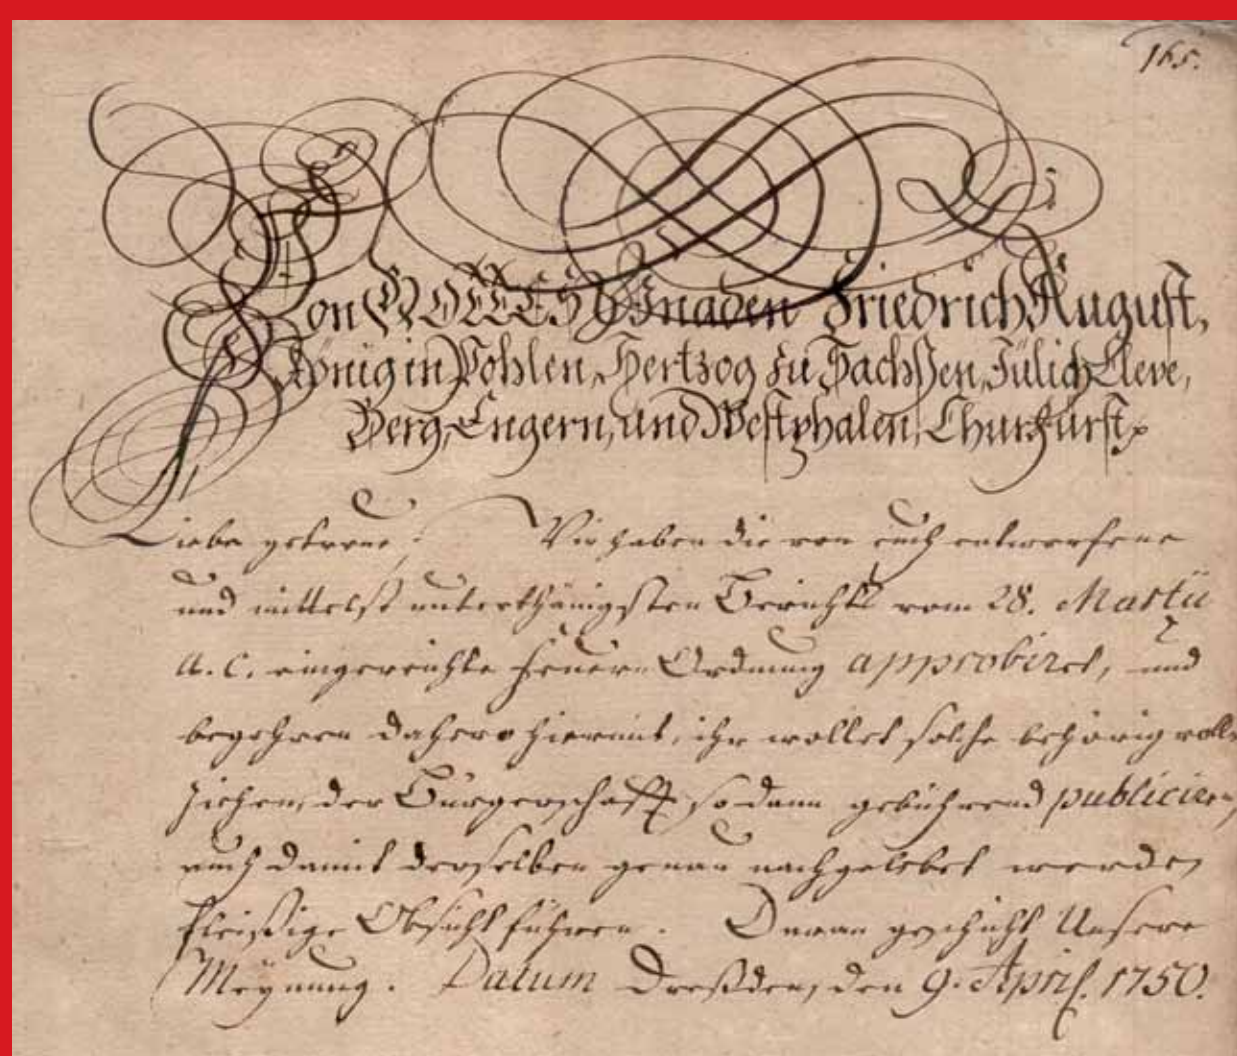 165.
Von GOTTES Gnaden Friedrich August,
König in Pohlen, Hertzog zu Sachßen, Jülich, Cleve,
Berg, Engern, und Westphalen, Churfürst
Liebe getreue; Wir haben die von euch entworfene
und mittelst unterthänigsten Berichts vom 28. Martii
a. c. eingereichte Feuer-Ordnung approbiret, und
begehren dahero hiermit, ihr wollet solche behörig voll-
ziehen, der Bürgerschafft sodann gebührend publiciren,
auch damit derselben genau nachgelebet werde,
fleißige Obsicht führen. Daran geschicht Unsere
Meynung. Datum Dreßden, den 9. April. 1750.